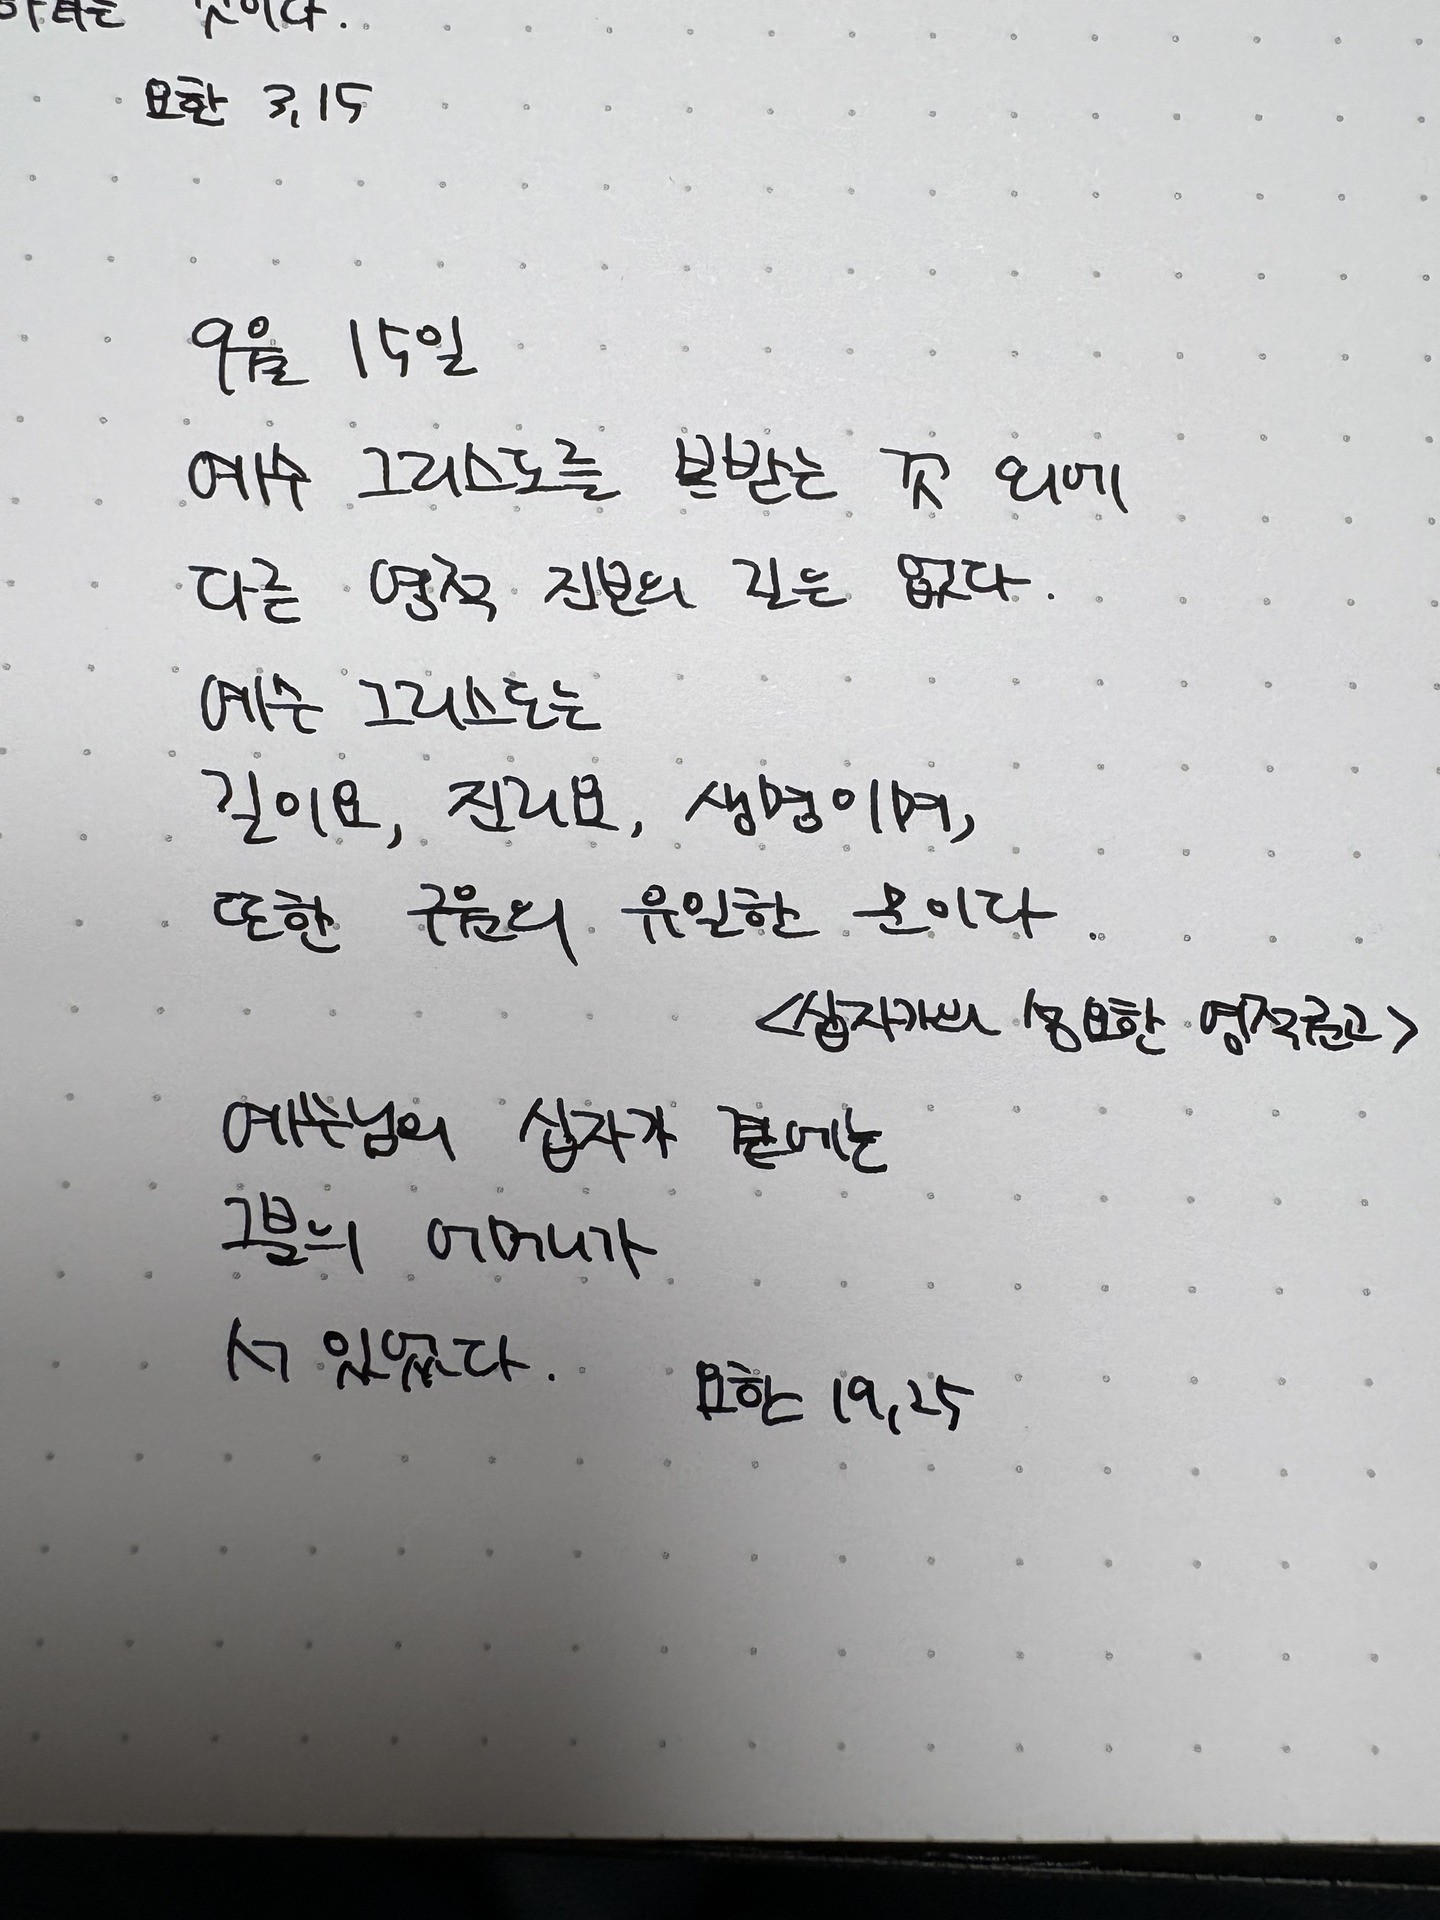 하려는 것이다.
요한 3,15
9월 15일
예수 그리스도를 본받는 것 외에
다른 영적 진보의 길은 없다.
예수 그리스도는
길이요, 진리요, 생명이며,
또한 구원의 유일한 문이다.
<십자가의 성요한 영적권고>
예수님의 십자가 곁에는
그분의 어머니가
서 있었다.
요한 19,25